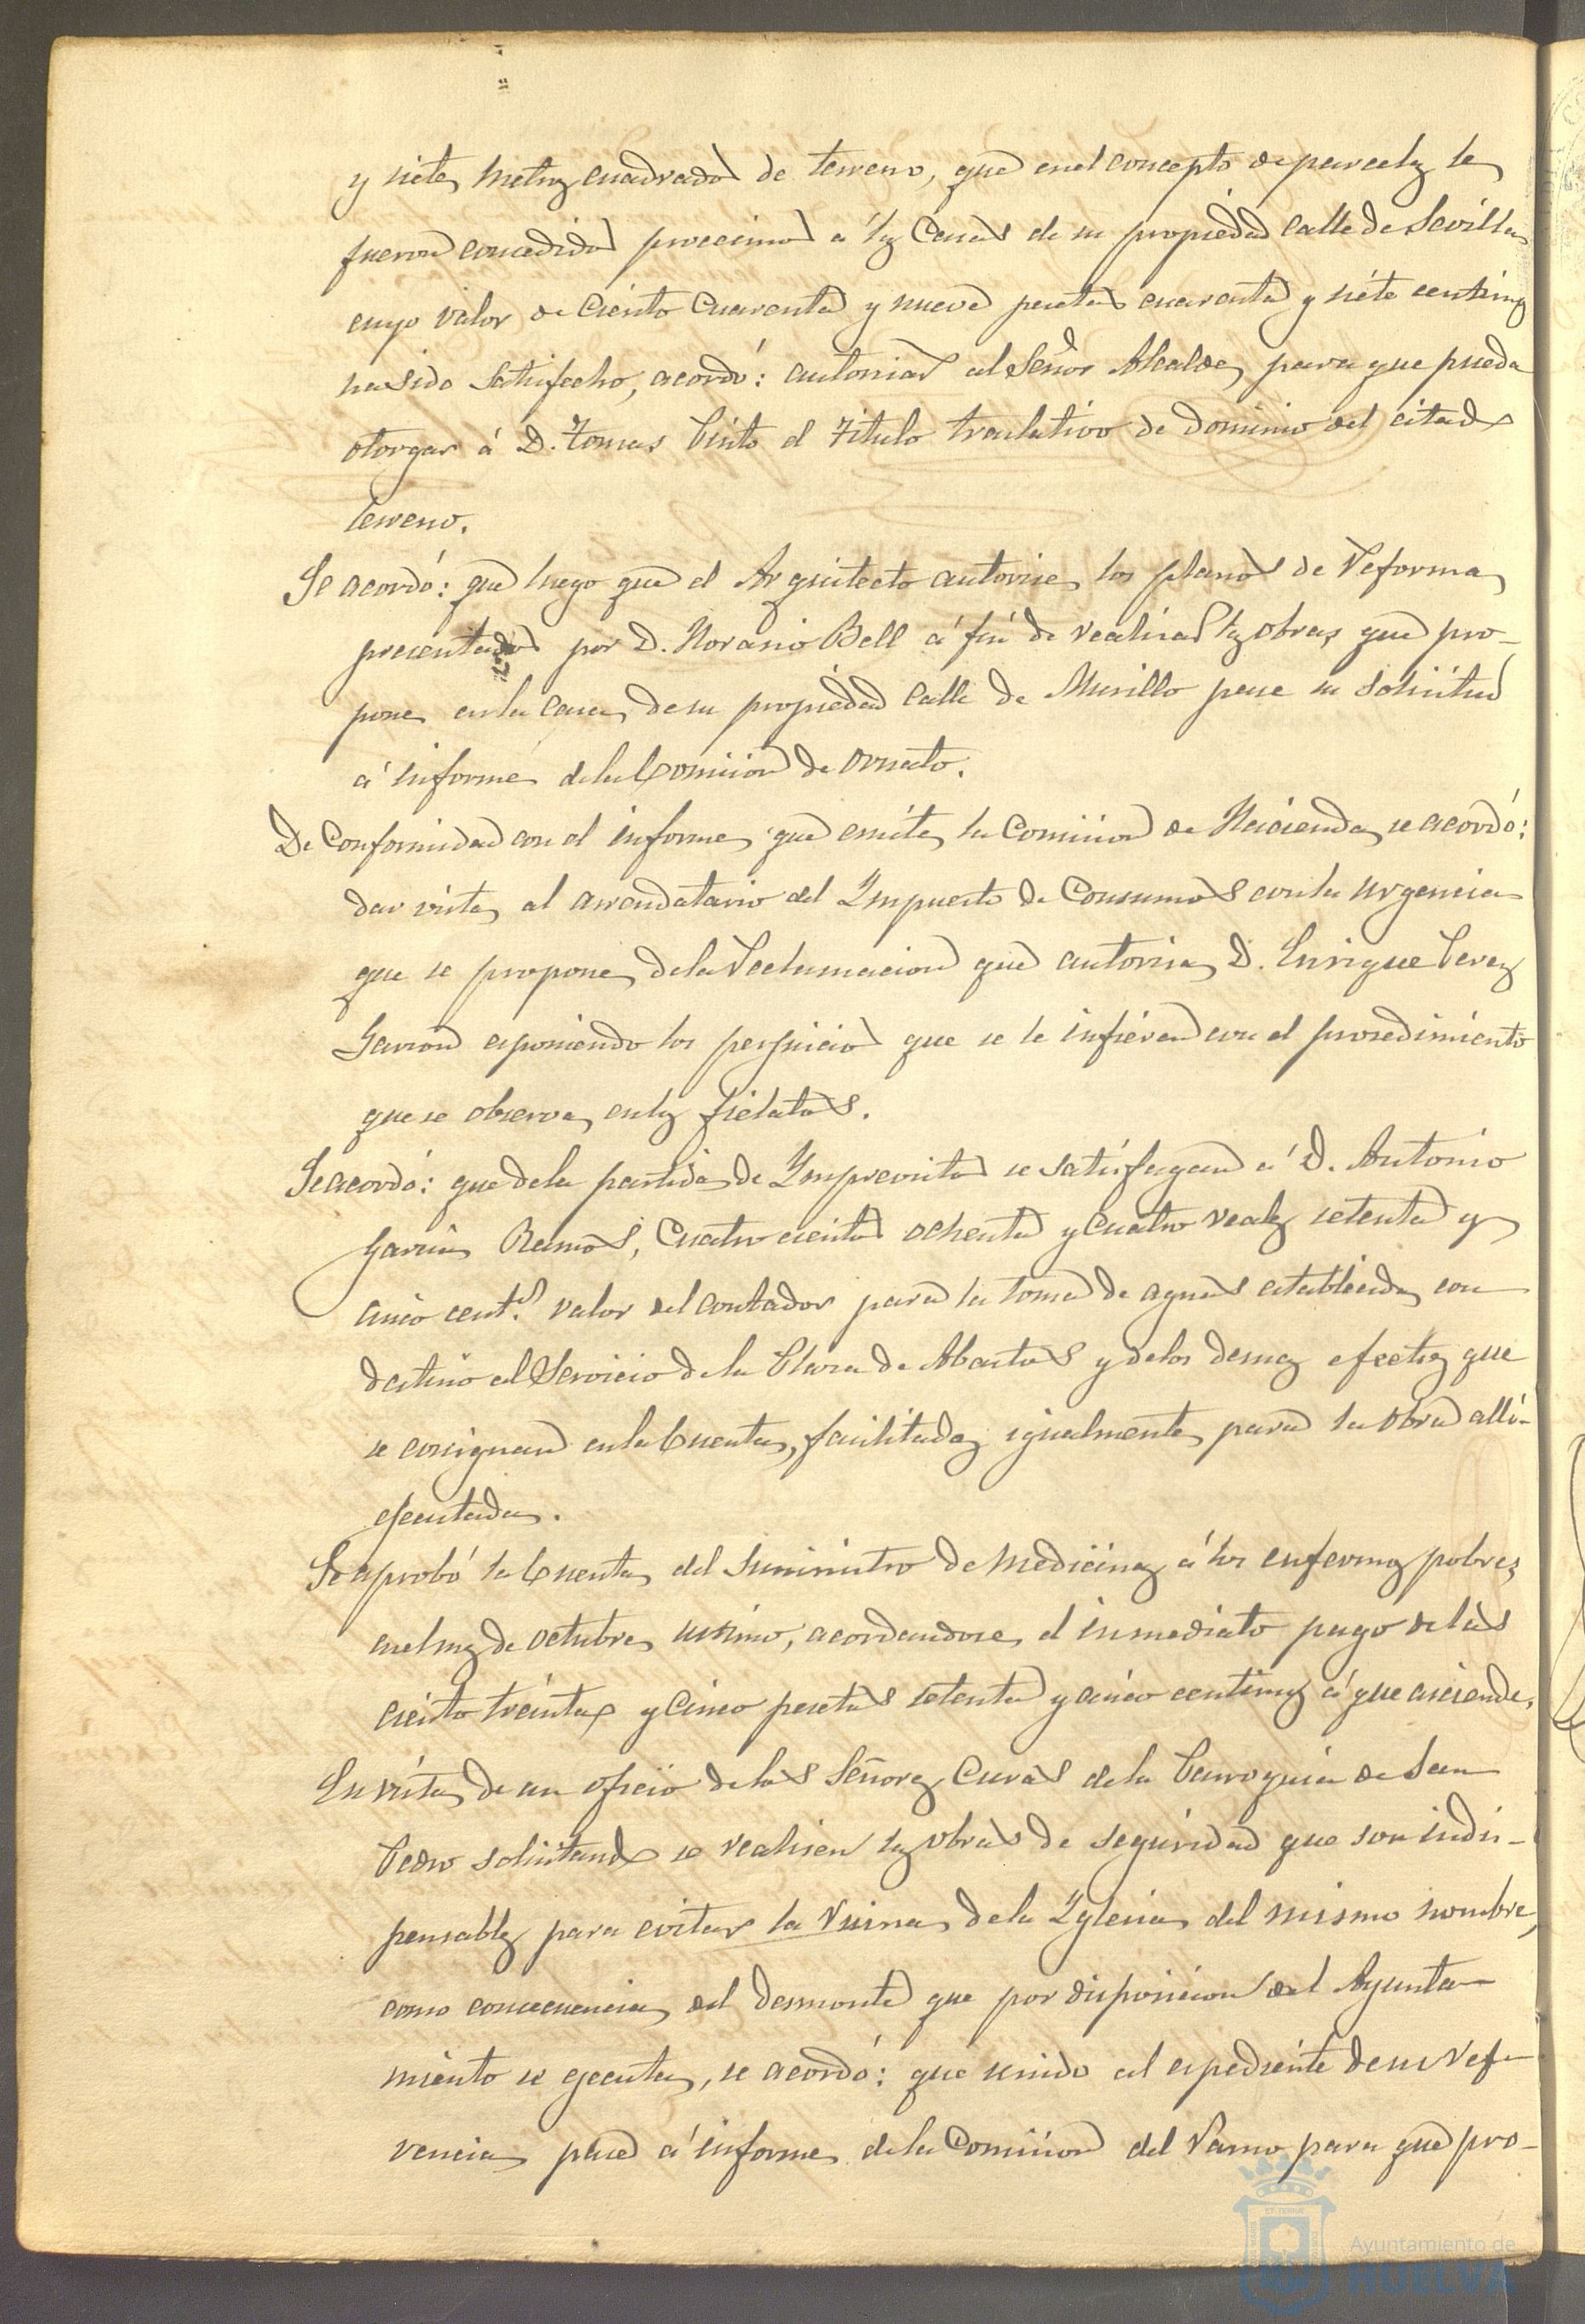 y siete metros cuadrados de terreno, que en el concepto de parcelas le
fueron concedidos procsimos á las Casas de su propiedad calle de Sevilla
cuyo valor de Ciento Cuarenta y nueve pesetas cuarenta y siete centimos
ha sido satisfecho, acordó: autorizar al Señor Alcalde, para que pueda
otorgar á D. Tomas Pinto el titulo traslativo de dominio del citado
terreno.
Se acordó: que luego que el Arquitecto autorice los planos de reforma
presentados por D. Horacio Bell á fin de realizar las obras que pro-
pone en la casa de su propiedad calle de Murillo pase su solicitud
á informe de la Comision de Ornato.
De Conformidad con el informe que emite la Comision de Hacienda se acordó:
dar vista al arrendatario del Ympuesto de Consumos con la urgencia
que se propone de la reclamacion que autoriza D. Enrique Perez
esponiendo los perjuicios que se le infieren con el prosedimiento
que se observa en los fielatos.
Se acordó: que de la partida de Ymprevistos se satisfagan á D. Antonio
Garcia Ramos, Cuatrocientos ochenta y Cuatro reales setenta y
cinco cent.s valor del contador para la toma de aguas establecida con
destino al Servicio de la Plaza de Abastos y de los demas efectos que
se consignan en la Cuenta, facilitados igualmente para la obra alli
ejecutada.
Se aprobó la Cuenta del suministro de medicinas á los enfermos pobres
en el mes de octubre ultimo, acordandose el inmediato pago de las
ciento treinta y Cinco pesetas setenta y cinco centimos á que asciende.
En vista de un oficio de los Señores Curas de la Parroquia de San
Pedro solicitando se realicen las obras de seguridad que son indis-
pensables para evitar la ruina de la Yglesia del mismo nombre,
como consecuencia del desmonte que por disposicion del Ayunta-
miento se ejecuta, se acordó: que unido al espediente de su refe-
rencia pase á informe de la Comision del Ramo para que pro-
Ayuntamiento de
HUELVA